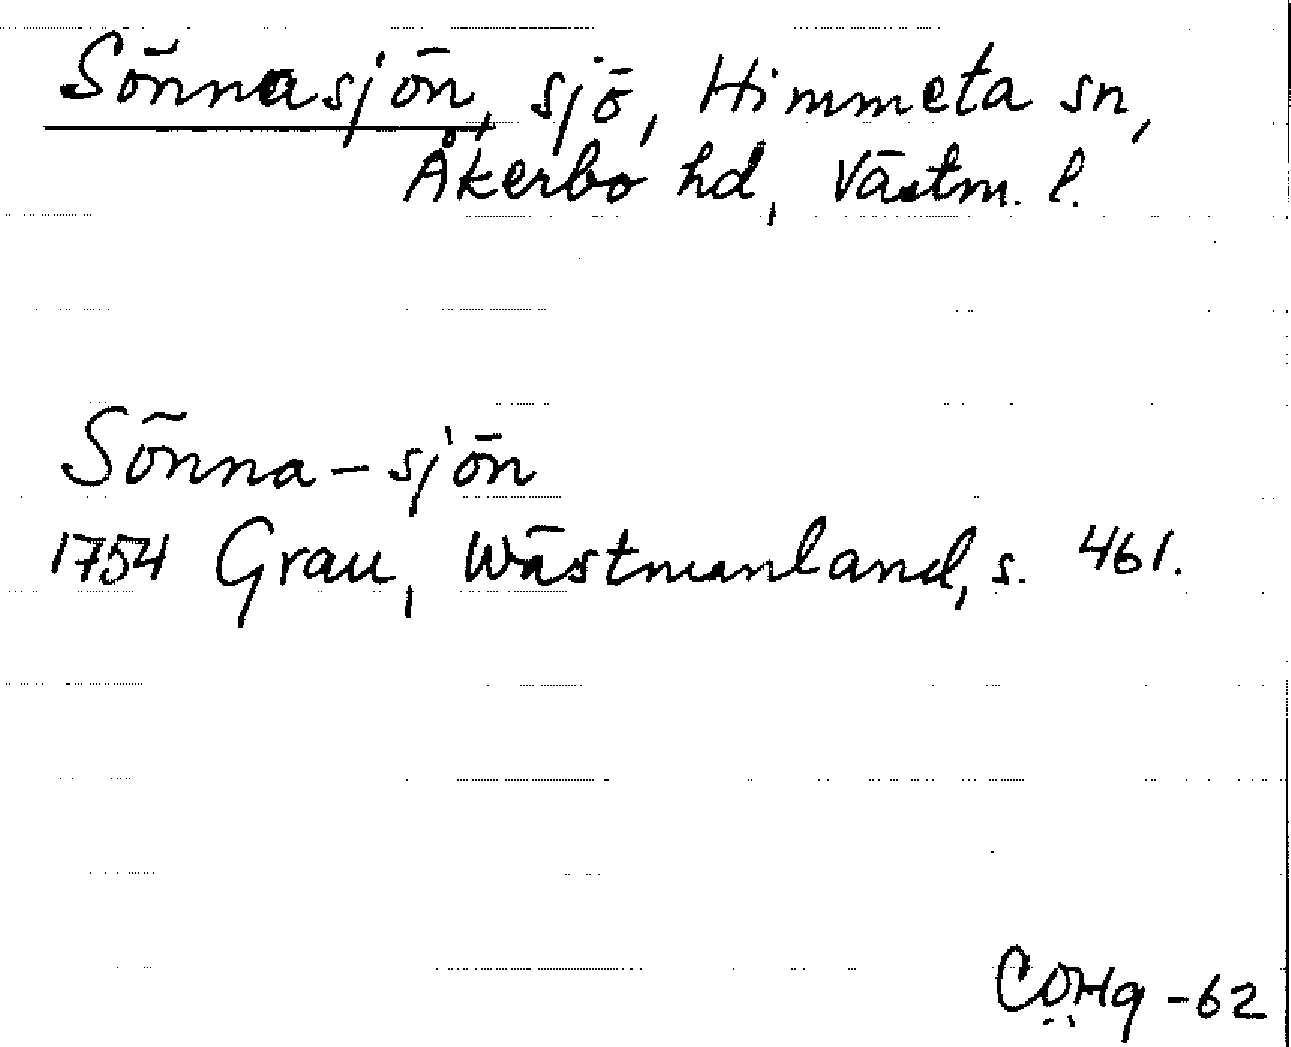 Sönnasjön, sjö, Himmeta sn,
Åkerbo hd, Västm. l.
Sönna-sjön
1754 Grau, Wästmanland, s. 461.
CÖHg -62